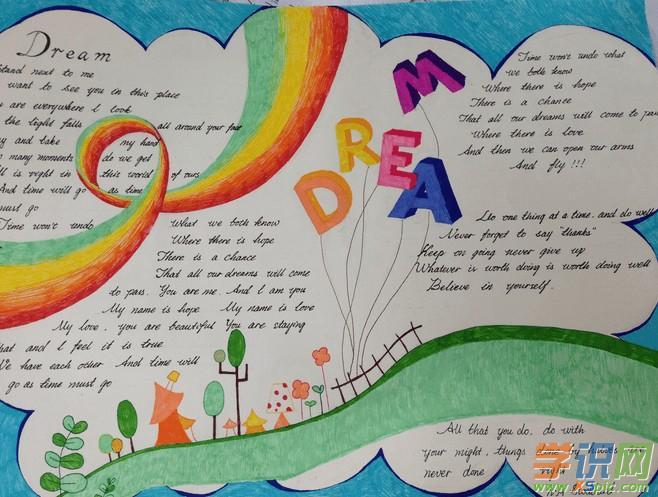 Dream
Stand next to me
want to see you in this place
You are everywhere I look
the light falls all around your feet
and take my hand
many moments do we get
All is right in this world of ours
And time will go as time
must go
Time won't undo What we both know
Where there is hope
There is a chance
That all our dreams will come
to pass. You are me. And I am you
My name is hope My name is love
My love, you are beautiful You are staying
that and I feel it is true
We have each other And time will
go as time must go
DREAM
Time won't undo what
we both know
Where there is hope
There is a chance
That all our dreams will come to pass
Where there is love
And then we can open our arms
And fly!!!
Do one thing at a time, and do well
Never forget to say "thanks"
Keep on going never give up
Whatever is worth doing is worth doing well
Believe in yourself.
All that you do, do with
your might, things done by halves are
never done right
学识网